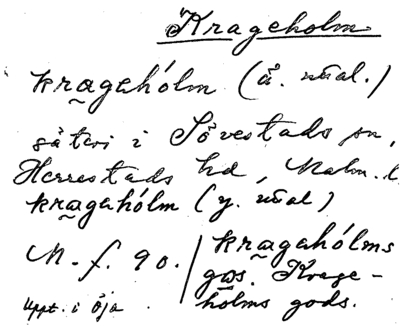 Krageholm
kragahólm (ä. uttal.)
säteri i Sövestads sn,
Herrestads hd, Malm. l.
kragahólm (y. uttal)
M. f. 90. / kragahólms
gǫs. Krage-
holms gods.
Uppt. i Öja.